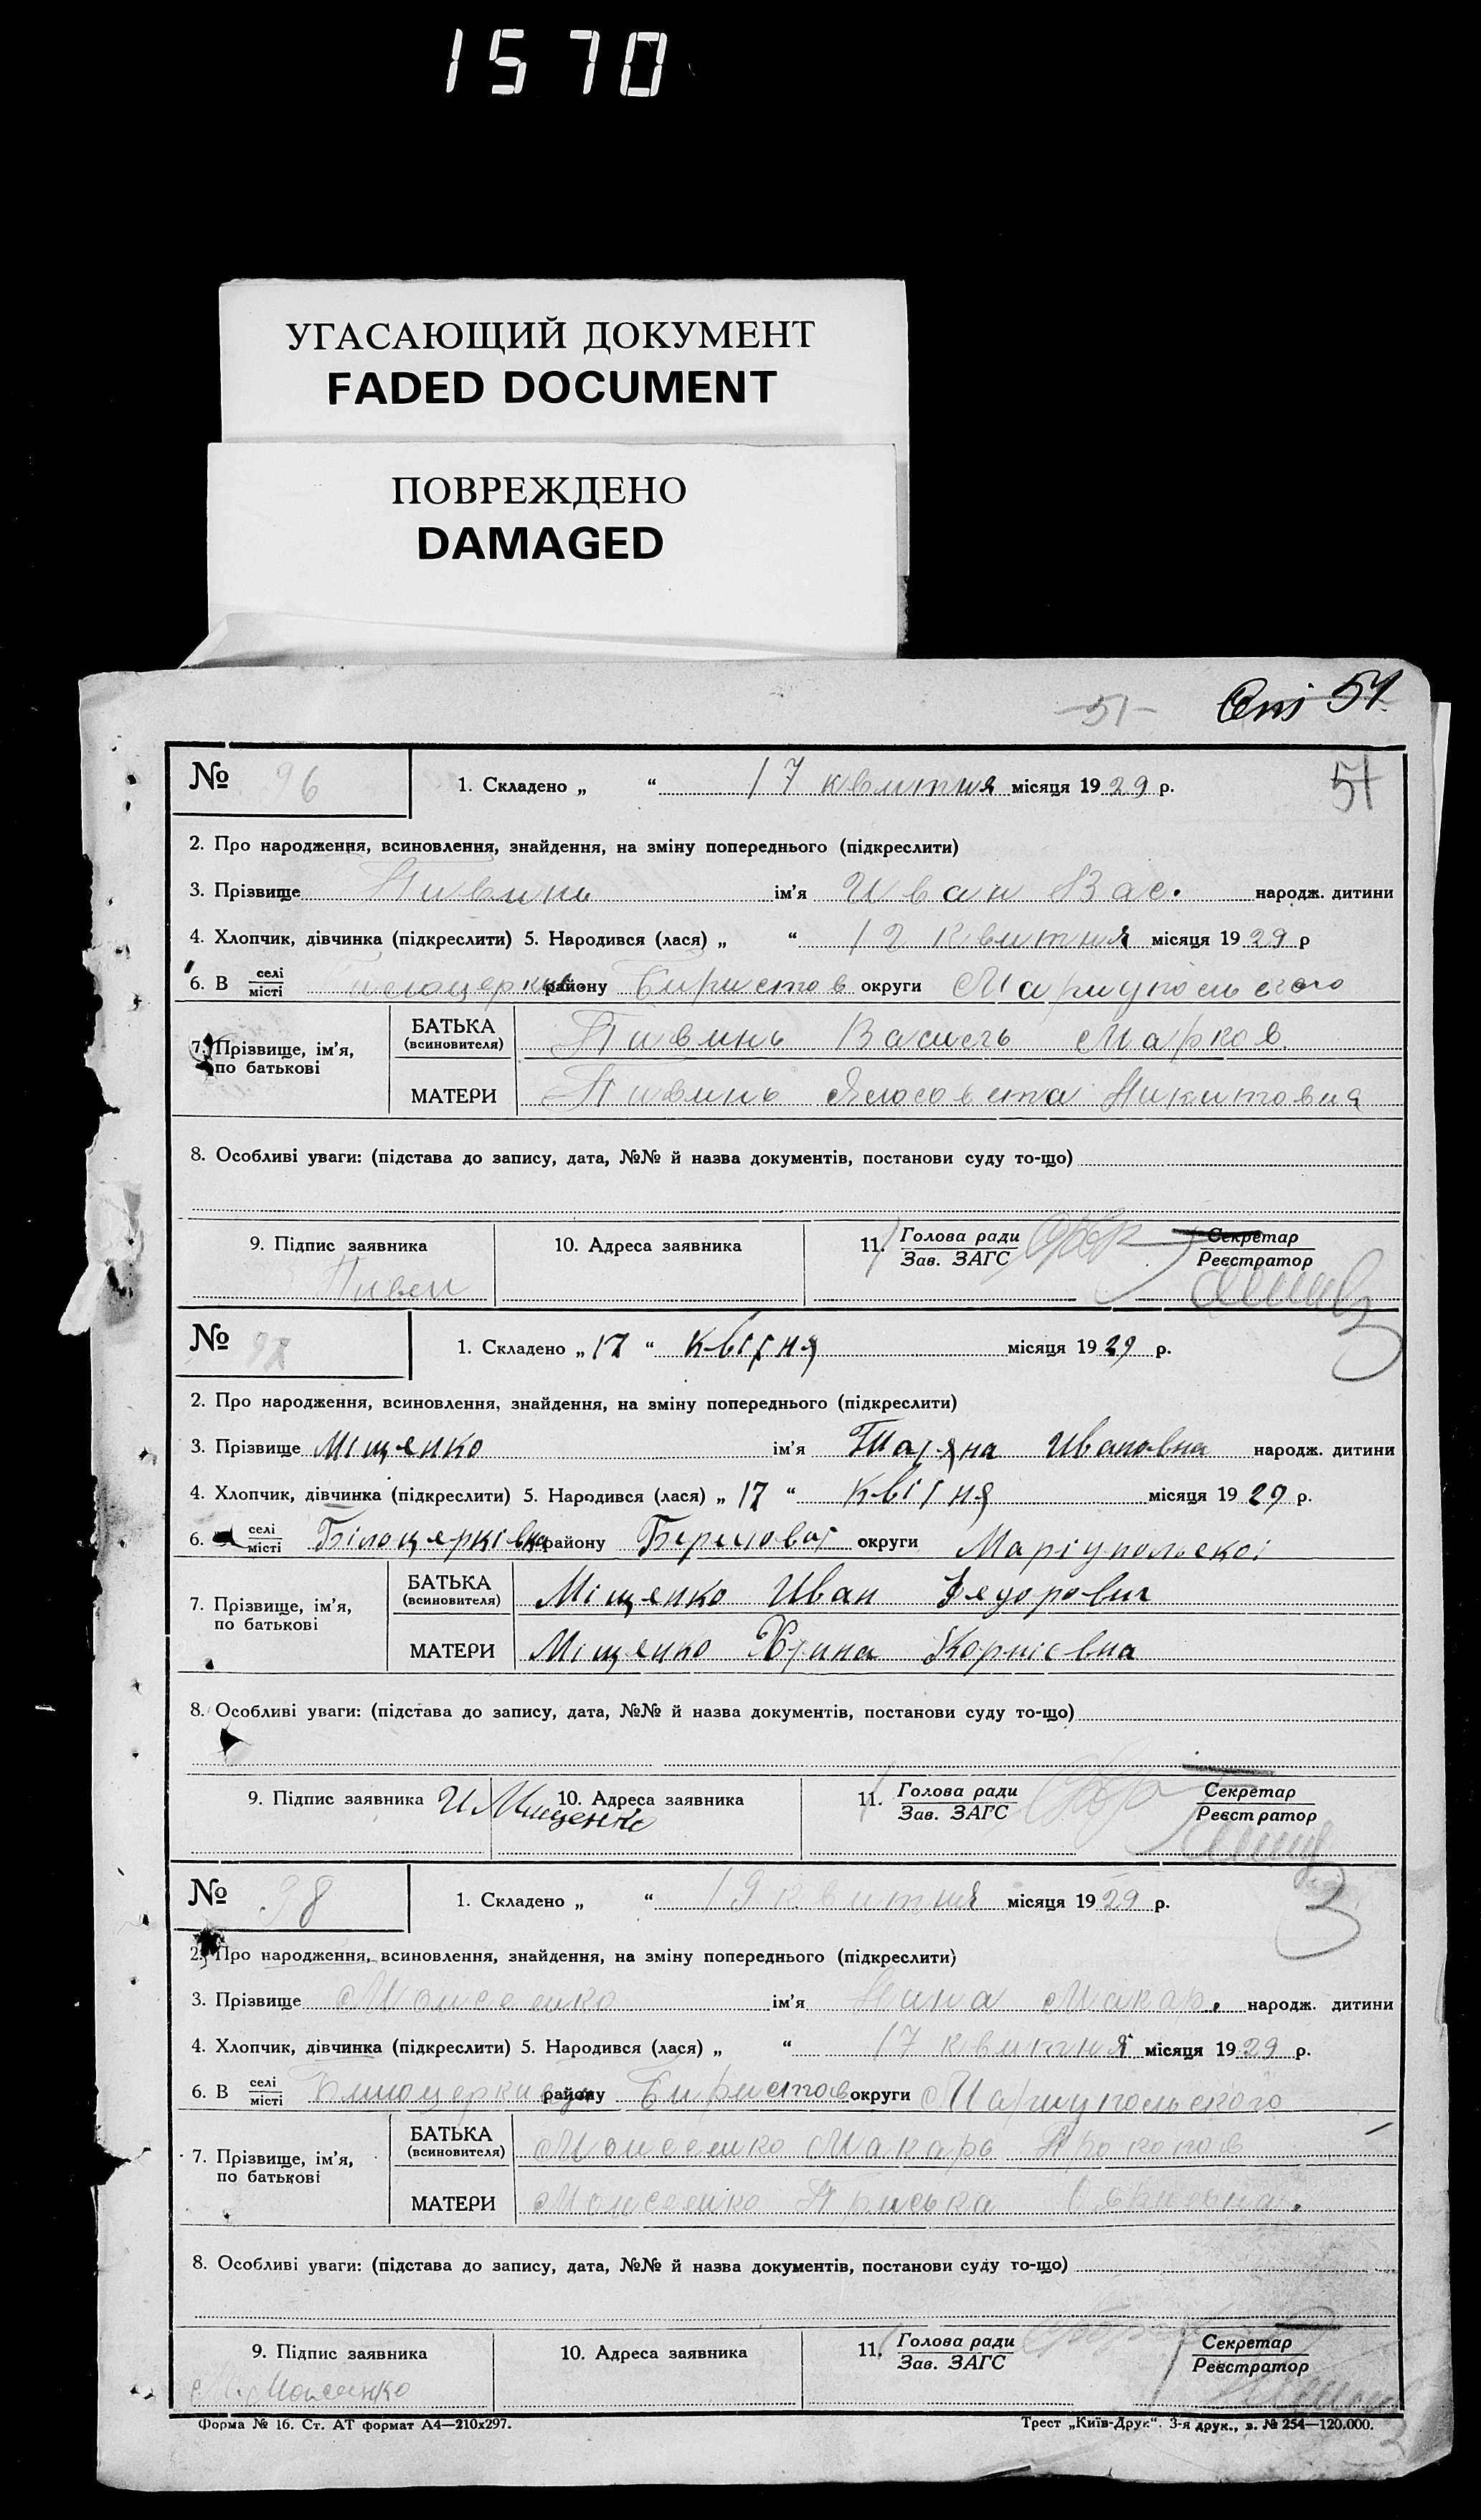 1570
УГАСАЮЩИЙ ДОКУМЕНТ
FADED DOCUMENT
ПОВРЕЖДЕНО
DAMAGED
51 51
№ 96 1. Складено „ “ 17 квитня місяця 1929 р. 51
2. Про народження, всиновлення, знайдення, на зміну попереднього (підкреслити)
3. Прізвище Пивинь ім’я Иван Вас. народж. дитини
4. Хлопчик, дівчинка (підкреслити) 5. Народився (лася) „ “ 12 квитня місяця 1929 р
6. В селі/місті району округи Мариупольского
7. Прізвище, ім’я, по батькові
БАТЬКА (всиновителя) Пивинь Василь Марков.
МАТЕРИ Пивинь Никитовна
8. Особливі уваги: (підстава до запису, дата, №№ й назва документів, постанови суду то-що)
9. Підпис заявника 10. Адреса заявника 11. Голова ради/Зав. ЗАГС Секретар/Реєстратор
Пивен
№ 97 1. Складено „17“ квітня місяця 1929 р.
2. Про народження, всиновлення, знайдення, на зміну попереднього (підкреслити)
3. Прізвище Міщенко ім’я Татяна Ивановна народж. дитини
4. Хлопчик, дівчинка (підкреслити) 5. Народився (лася) „17“ квітня місяця 1929 р.
6. селі/місті Білоцерківка району округи Маріупольскої
7. Прізвище, ім’я, по батькові
БАТЬКА (всиновителя) Міщенко Иван Федорович
МАТЕРИ Міщенко
8. Особливі уваги: (підстава до запису, дата, №№ й назва документів, постанови суду то-що)
9. Підпис заявника И Мищенко 10. Адреса заявника 11. Голова ради/Зав. ЗАГС Секретар/Реєстратор
№ 98 1. Складено „ “ 19 квитня місяця 1929 р.
2. Про народження, всиновлення, знайдення, на зміну попереднього (підкреслити)
3. Прізвище Моисеенко ім’я Нина Макар. народж. дитини
4. Хлопчик, дівчинка (підкреслити) 5. Народився (лася) „ “ 17 квитня місяця 1929 р.
6. В селі/місті району округи Мариупольского
7. Прізвище, ім’я, по батькові
БАТЬКА (всиновителя) Моисеенко Макарь Прокопов
МАТЕРИ Моисеенко Приська
8. Особливі уваги: (підстава до запису, дата, №№ й назва документів, постанови суду то-що)
9. Підпис заявника 10. Адреса заявника 11. Голова ради/Зав. ЗАГС Секретар/Реєстратор
Моисеенко
Форма № 16. Ст. АТ формат А4—210х297. Трест „Київ-Друк“. 3-я друк., з. № 254—120.000.